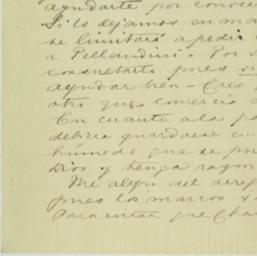 ayudarte por conoce
Si lo dejamos en ma
se limitará a pedir
a Pellandini. Por
consultarte pues
ayudar bien. Cres
otro que comercia
En cuanto a la pa
debiera guardarse en
húmedo que se pu
Dios y tenga razon
Me alegro del arreg
pues los marcos
Para evitar que Cha